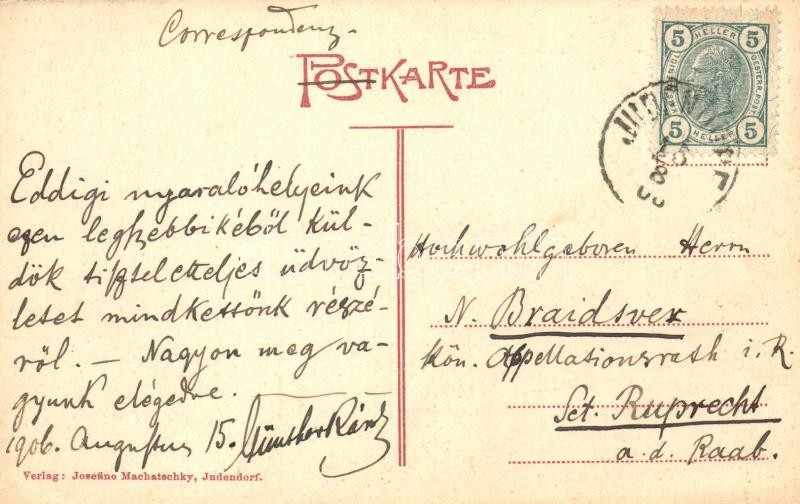 Correspondenz.
POSTKARTE
5 HELLER 5
5 HELLER 5
Eddigi nyaralóhelyeink
ezen legszebbikéből kül-
dök tisztelettteljes üdvöz-
letet mindkettőnk részé-
ről. — Nagyon meg va-
gyunk elégedve.
1906. Augusztus 15.
Hochwohlgeboren Herrn
N. Braidsver
Kön. Appellationsrath i. R.
Sct. Ruprecht
a. d. Raab.
Verlag: Josefine Machatschky, Judendorf.